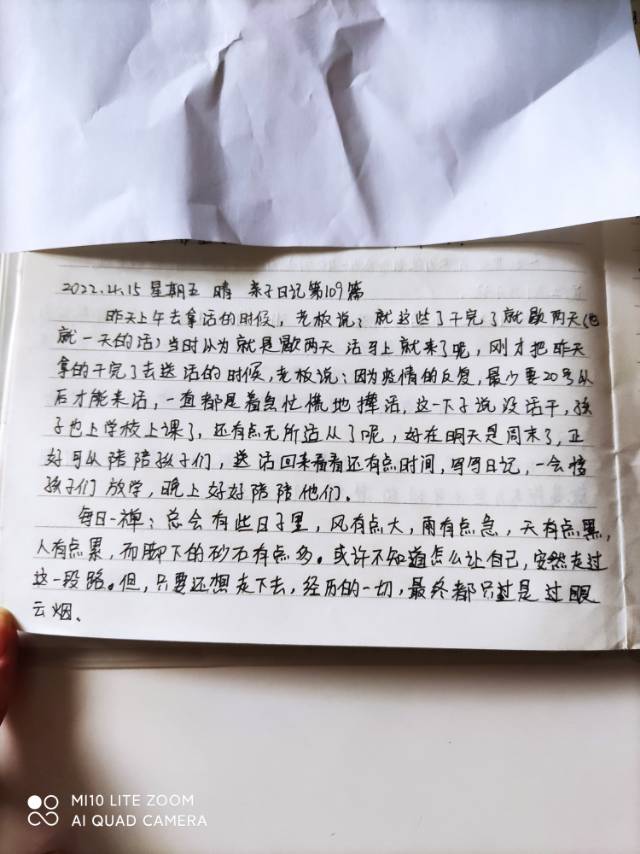 2022.4.15 星期五 晴 亲子日记第109篇
昨天上午去拿活的时候，老板说：就这些了干完了就歇两天（也
就一天的活）当时以为就是歇两天 活马上就来了呢，刚才把昨天
拿的干完了去送活的时候，老板说：因为疫情的反复，最少要20号以
后才能来活，一直都是着急忙慌地撵活，这一下子说没活干，孩
子也上学校上课了，还有点无所适从了呢，好在明天是周末了，正
好可以陪陪孩子们，送活回来看看还有点时间，写写日记，一会接
孩子们放学，晚上好好陪陪他们。
每日一禅：总会有些日子里，风有点大，雨有点急，天有点黑，
人有点累，而脚下的砂石有点多。或许不知道怎么让自己，安然走过
这一段路。但，只要还想走下去，经历的一切，最终都只过是过眼
云烟、
MI10 LITE ZOOM
AI QUAD CAMERA